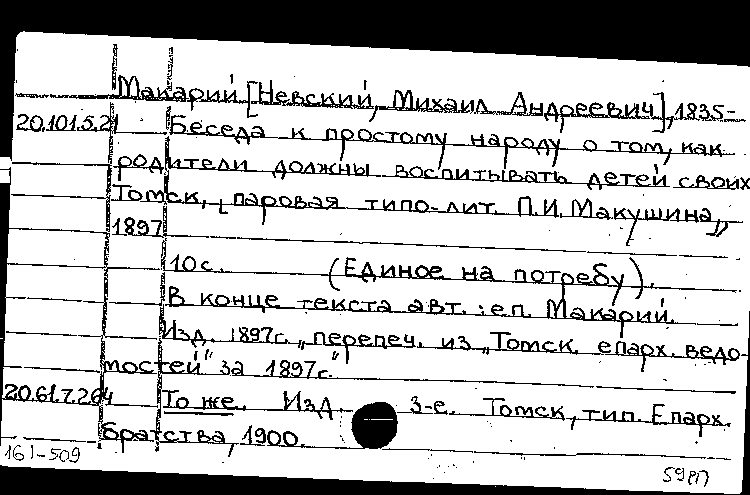 Макарий [Невский, Михаил Андреевич], 1835-
20.101.5.21 Беседа к простому народу о том, как
родители должны воспитывать детей своих
Томск, [паровая типо-лит. П.И. Макушина,]
1897
10 с. (Единое на потребу).
В конце текста авт.: еп. Макарий.
Изд. 1897г. „перепеч. из „Томск. епарх. ведо-
мостей" за 1897г."
20.61.7.264 То же. Изд. 3-е. Томск, тип. Епарх.
братства, 1900.
161-509